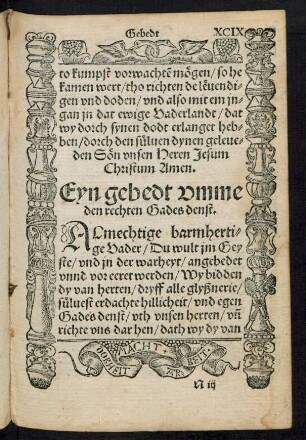 Gebedt XCIX
to kumpst vorwachtẽ mögen/ so he
kamen wert/ tho richten de leuendi
gen vnd doden/ vnd also mit em jn
gan jn dat ewige Vaderlandt/ dat
wy dorch synen dodt erlanget heb-
ben/ dorch den süluen dynen geleue-
den Sön vnsen Heren Jesum
Christum Amen.
Eyn gebedt vmme
den rechten Gades denst.
ALmechtige barmherti-
ge Vader/ Du wult jm Gey
ste/ vnd jn der warheyt/ angebedet
vnnd vor eeret werden/ Wy bidden
dy van herten/ dryff alle glyßnerie/
süluest erdachte hillicheit/ vnd egen
Gades denst/ vth vnsen herten/ vñ
richte vns dar hen/ dath wy dy van
MACHT
DORHEIT
N iij